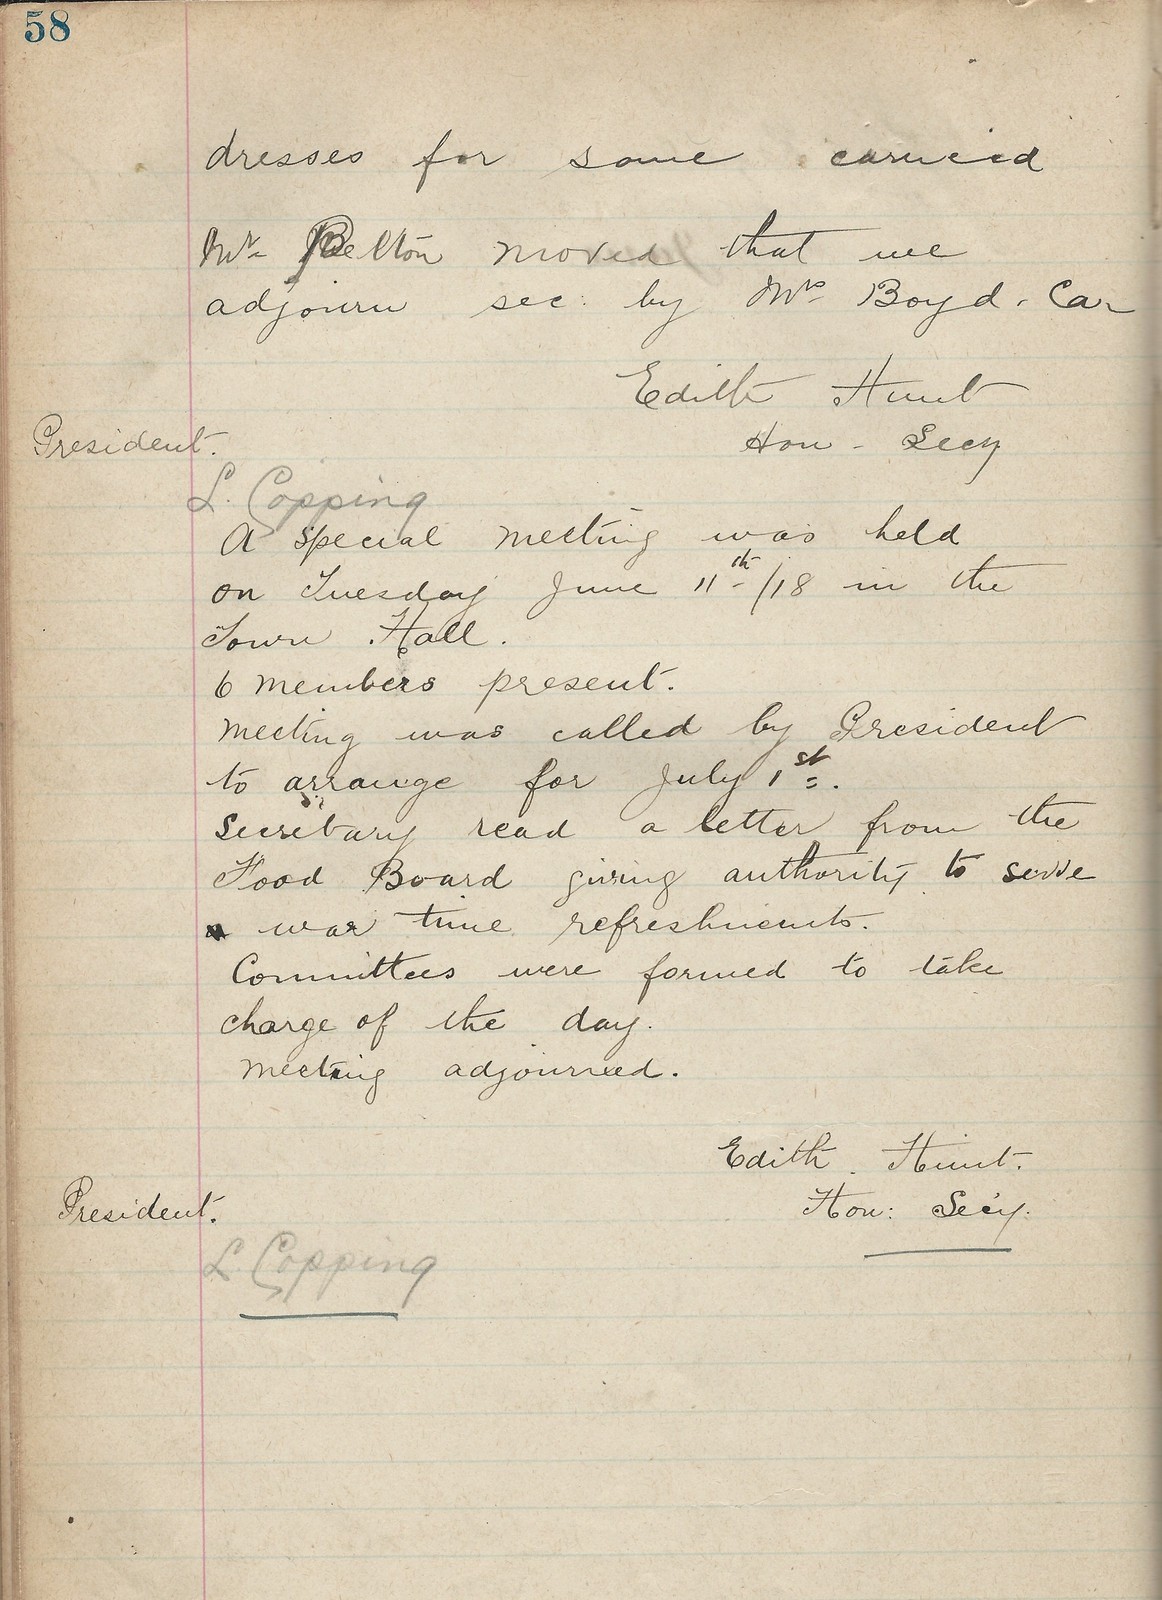 58
dresses for same carried
Mr Belton moved that we
adjourn sec. by Mrs Boyd. Car
Edith Hunt
Hon - Secy
President.
L. Copping
A special meeting was held
on Tuesday June 11th/18 in the
Town Hall.
6 members present.
Meeting was called by President
to arrange for July 1st.
Secretary read a letter from the
Food Board giving authority to serve
war time refreshments.
Committees were formed to take
charge of the day.
Meeting adjourned.
Edith. Hunt.
Hon: Secy.
President.
L. Copping